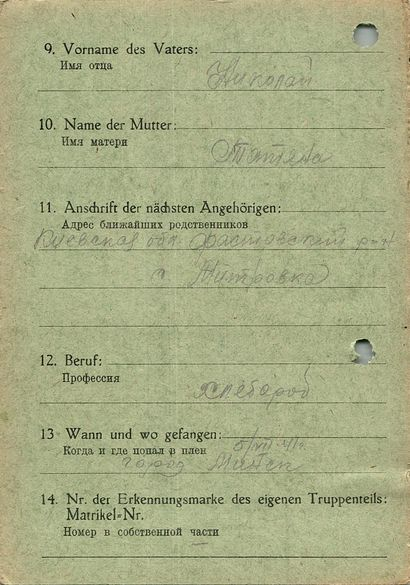 9. Vorname des Vaters:
Имя отца
Николай
10. Name der Mutter:
Имя матери
11. Anschrift der nächsten Angehörigen:
Адрес ближайших родственников
Киевская обл Фастовский р-н
с
12. Beruf:
Профессия
хлебороб
13 Wann und wo gefangen:
Когда и где попал в плен
город Минск
14. Nr. der Erkennungsmarke des eigenen Truppenteils:
Matrikel-Nr.
Номер в собственной части